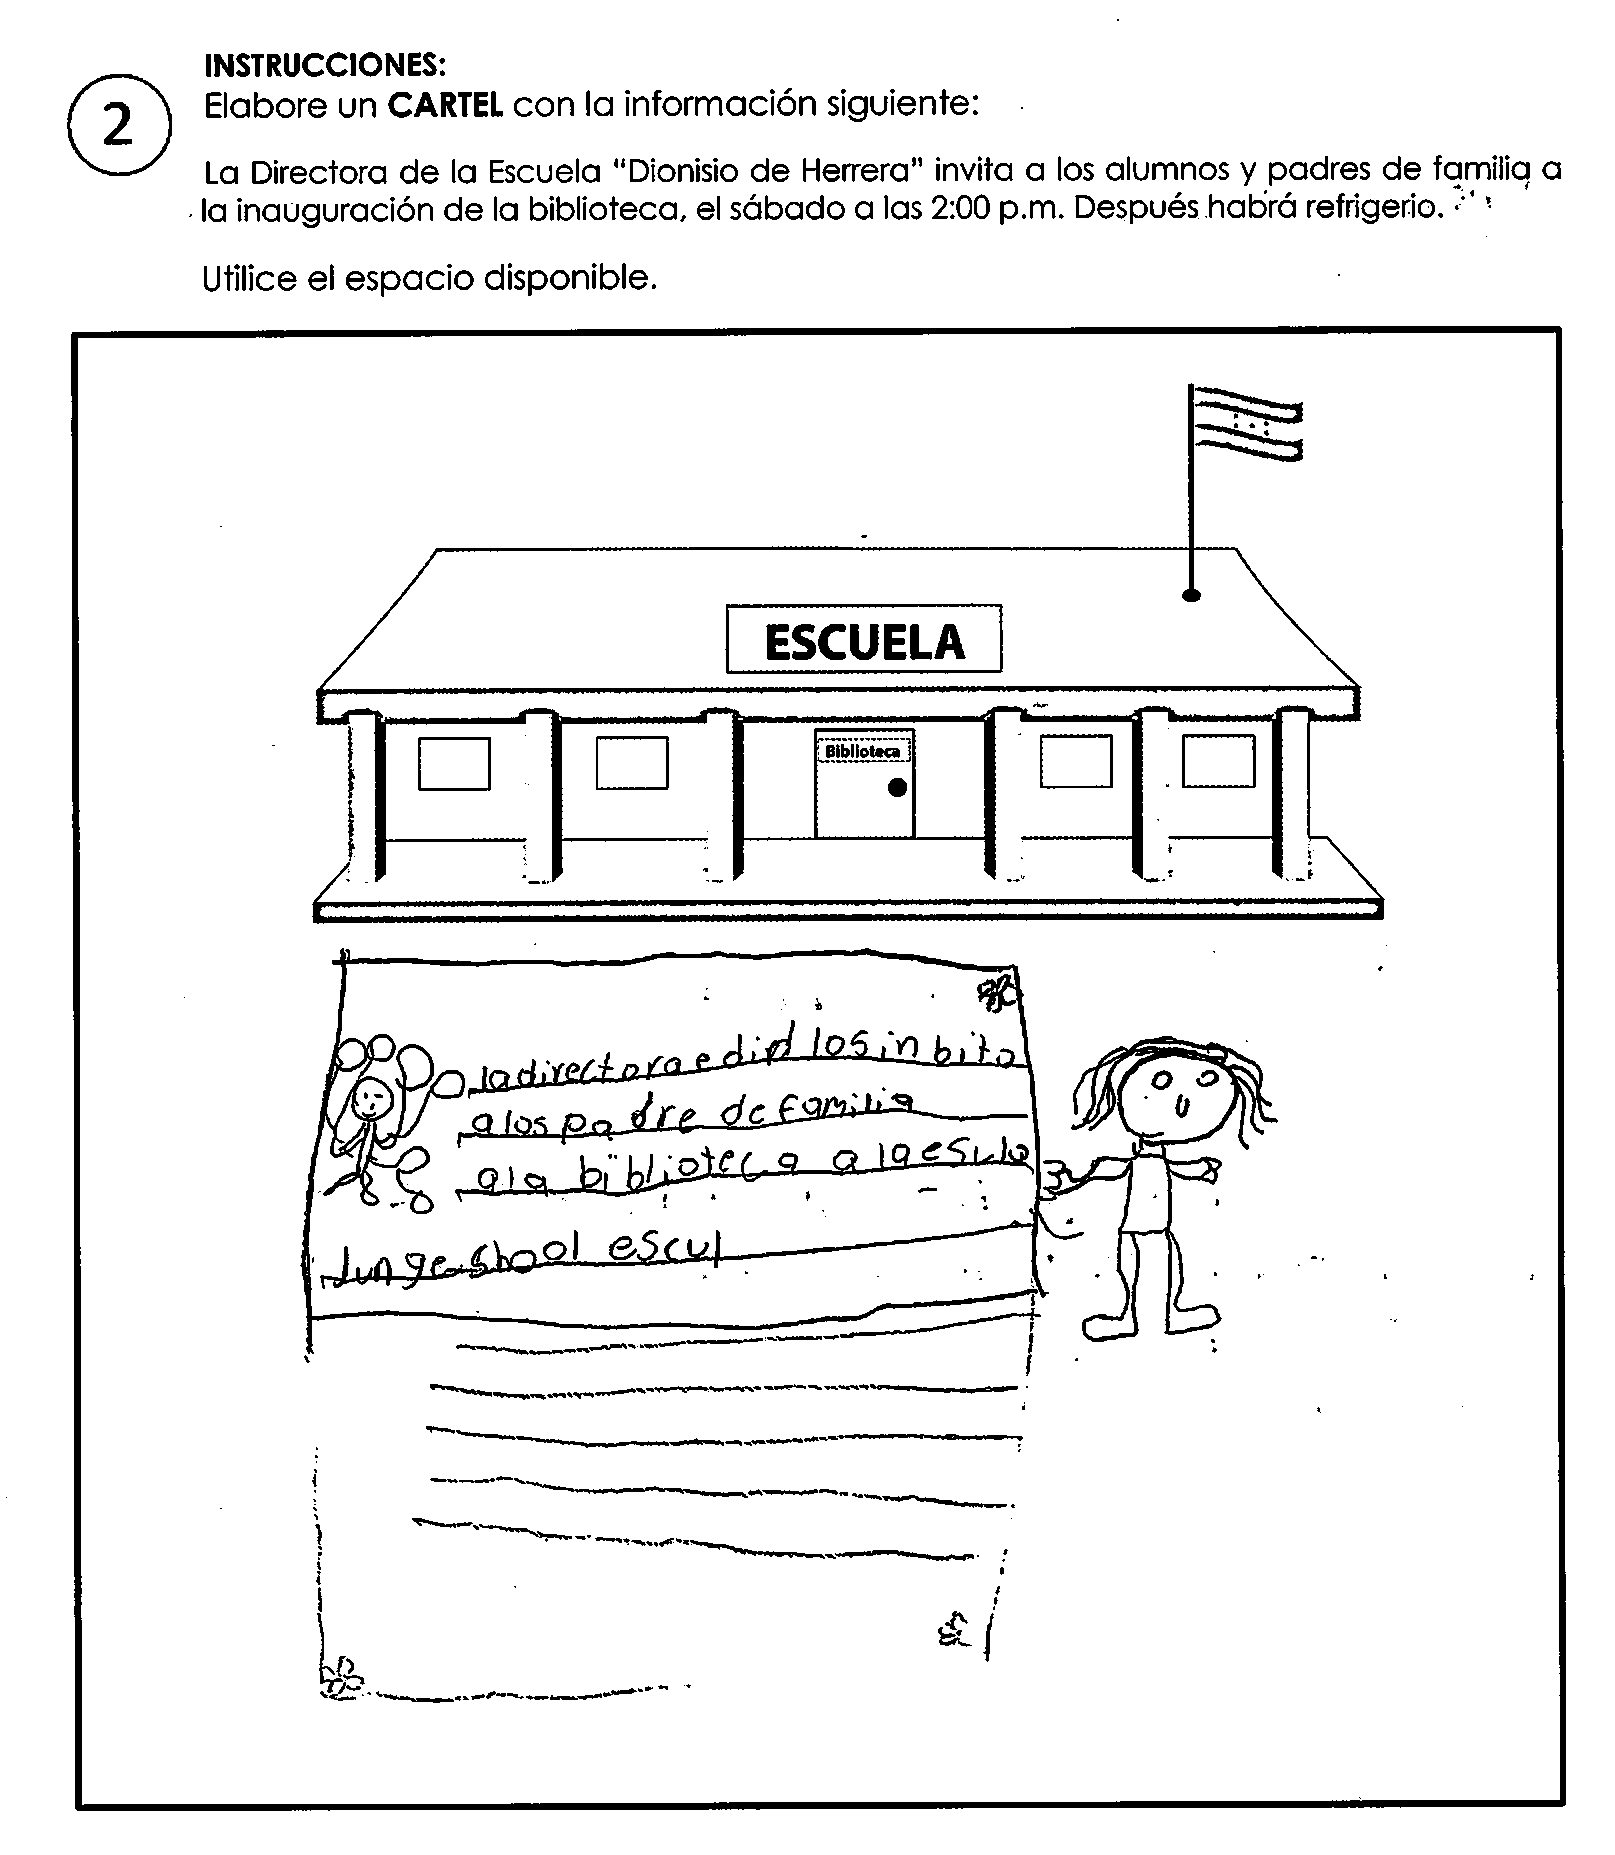 INSTRUCCIONES:
2
Elabore un CARTEL con la información siguiente:
La Directora de la Escuela "Dionisio de Herrera" invita a los alumnos y padres de familia a
la inauguración de la biblioteca, el sábado a las 2:00 p.m. Después habrá refrigerio.
Utilice el espacio disponible.
ESCUELA
Biblioteca
la directora e los in bita
a los padre de familia
a la biblioteca a la
escul